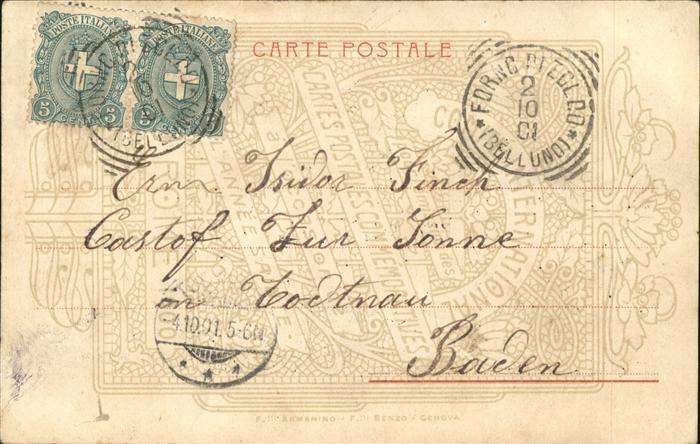 POSTE ITALIANE
POSTE ITALIANE
5 CENT 5
5
CARTE POSTALE
FORNO DI ZOLDO
2
10
01
(BELLUNO)
CARTES POSTALES
Ern Isidor Finck
Castof Zur Sonne
in Todtnau
4.10.01. 5-6N
Baden
F.lli ARMANINO - F.lli BENZO / GENOVA